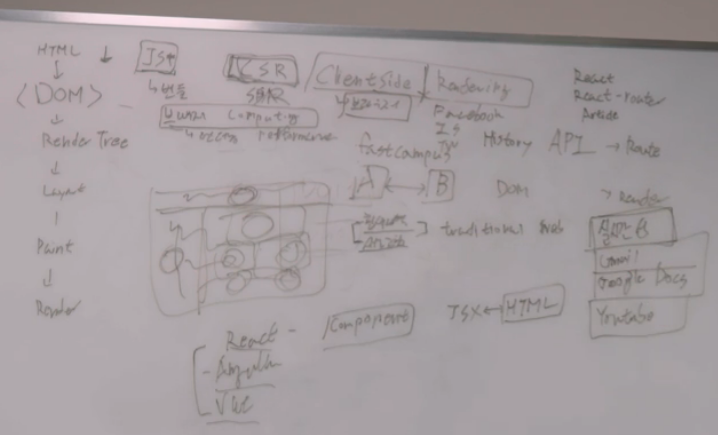 HTML ↓ JS
↓
<DOM>
↓
Render Tree
↓
Layout
Paint
↓
Render
번들
CSR
SSR
Client side Rendering
브라우저 Computing
access performance
Facebook
fastcampus
History API → Route
React
React-router
Article
A ↔ B
DOM
> Render
traditional Web
Gmail
Google Docs
Youtube
JSX ← HTML
Component
React -
- Angular
Vue